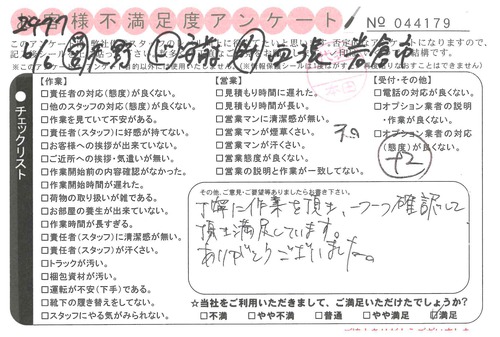 お客様不満足度アンケート
№ 044179
チェックリスト
【作業】
□責任者の対応(態度)が良くない。
□他のスタッフの対応(態度)が良くない。
□作業を見ていて不安がある。
□責任者(スタッフ)に好感が持てない。
□お客様への挨拶が出来ていない。
□ご近所への挨拶・気遣いが無い。
□作業開始前の内容確認がなかった。
□作業開始時間が遅れた。
□荷物の取り扱いが雑である。
□お部屋の養生が出来ていない。
□作業時間が長すぎる。
□責任者(スタッフ)に清潔感が無い。
□責任者(スタッフ)が汗くさい。
□トラックが汚い。
□梱包資材が汚い。
□運転が不安(下手)である。
□靴下の履き替えをしてない。
□スタッフにやる気がみられない。
【営業】
□見積もり時間に遅れた。
□見積もり時間が長い。
□営業マンに清潔感が無い。
□営業マンが煙草くさい。
□営業マンが汗くさい。
□営業態度が良くない。
□営業の説明と作業が一致してない。
【受付・その他】
□電話の対応が良くない。
□オプション業者の説明
・作業が良くない。
□オプション業者の対応
(態度)が良くない。
+2
その他、ご意見・ご要望等ありましたらお書き下さい。
丁寧に作業を頂き、一つ一つ確認して
頂き満足しています。
ありがとうございました。
☆当社をご利用いただきまして、ご満足いただけたでしょうか?
□不満 □やや不満 □普通 □やや満足 ☑満足